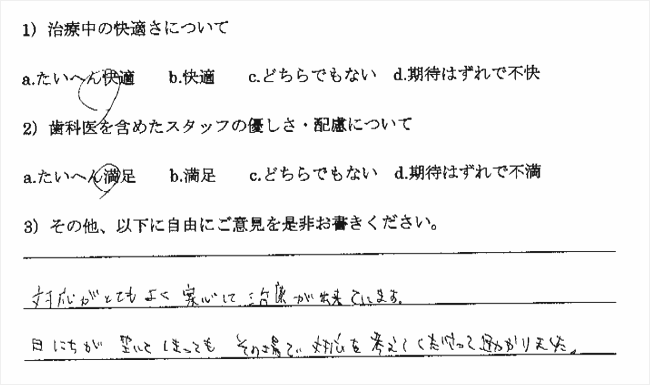 1）治療中の快適さについて
a.たいへん快適 b.快適 c.どちらでもない d.期待はずれで不快
2）歯科医を含めたスタッフの優しさ・配慮について
a.たいへん満足 b.満足 c.どちらでもない d.期待はずれで不満
3）その他、以下に自由にご意見を是非お書きください。
対応がとてもよく安心して治療が出来ています。
日にちが空いてしまっても その場で対応を考えてくださって助かりました。